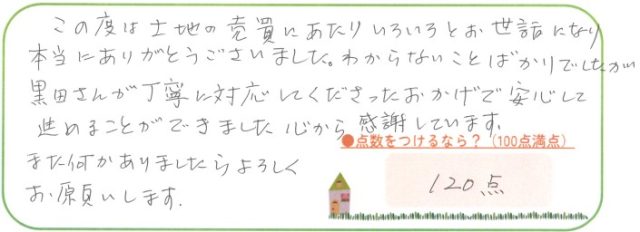 この度は土地の売買にあたりいろいろとお世話になり
本当にありがとうございました。わからないことばかりでしたが
黒田さんが丁寧に対応してくださったおかげで安心して
進めることができました 心から感謝しています.
また何かありましたらよろしく
お願いします.
●点数をつけるなら?(100点満点)
120点